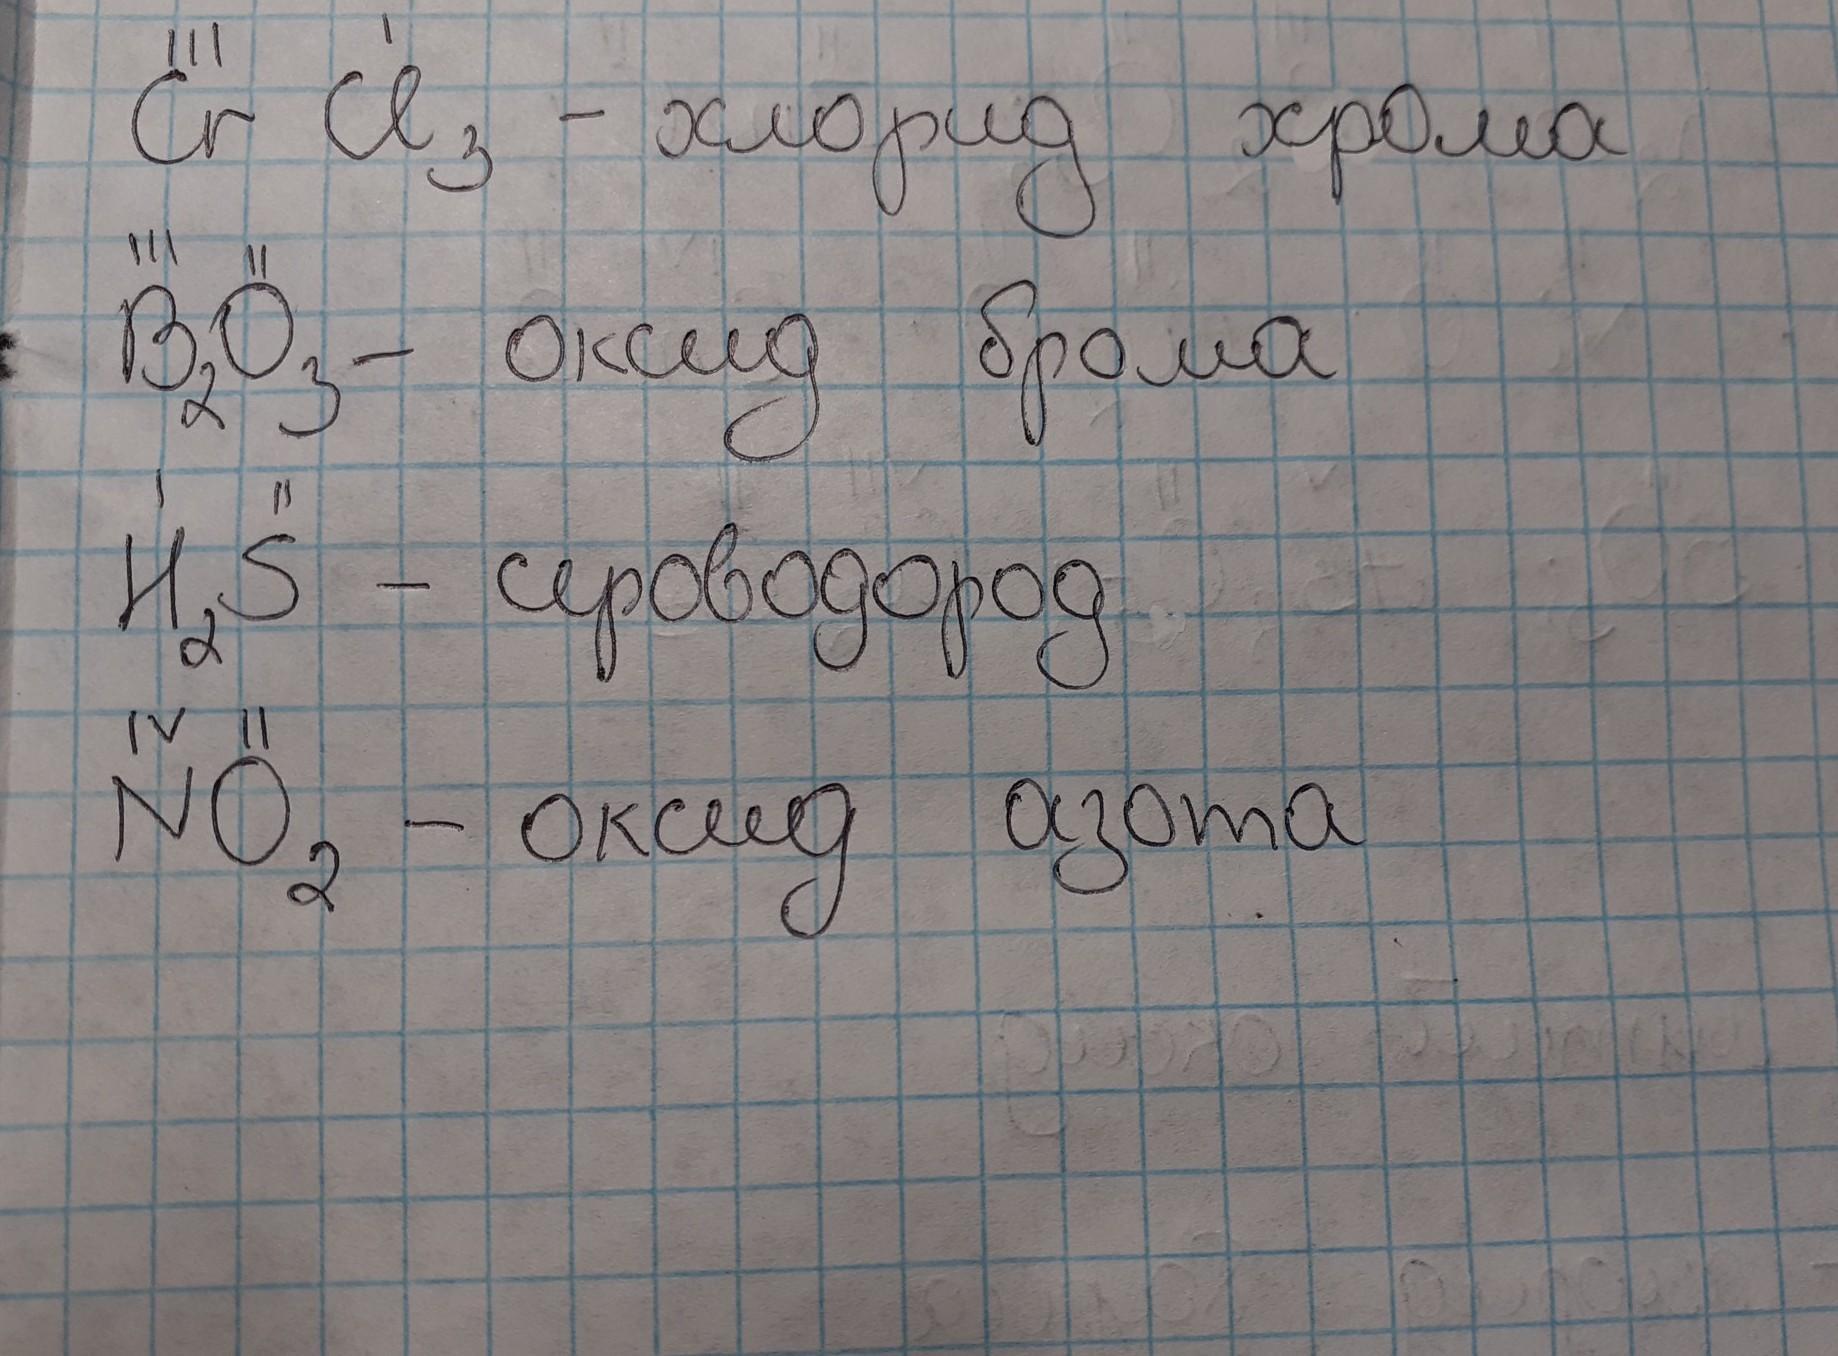 III I
CrCl₃ - хлорид хрома
III II
B₂O₃ - оксид брома
I II
H₂S - сероводород
IV II
NO₂ - оксид азота